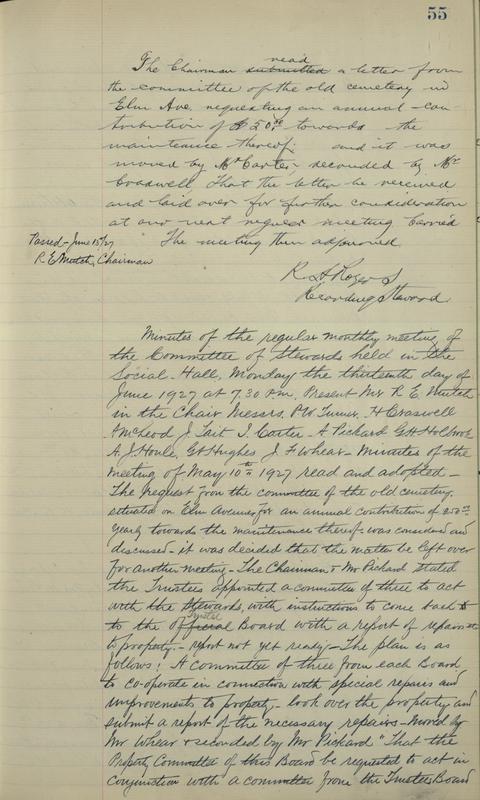 55
The Chairman read submitted a letter from
the committee of the old cemetery in
Elm Ave. requesting an annual con-
tribution of $250.00 towards the
maintenance thereof; and it was
moved by Mr Carter, seconded by Mr
Craswell, That the letter be received
and laid over for further consideration
at our next regular meeting Carried
The meeting then adjourned
Passed - June 13/27
R E Mutch, Chairman
R. H. Rogers
Recording Steward
Minutes of the regular monthly meeting of
the Committee of Stewards held in the
Social Hall, Monday the thirteenth day of
June 1927 at 7.30 P.M. Present Mr R. E. Mutch
in the Chair Messrs. P W Turner. H Craswell
A McLeod J. Tait I. Carter. A Pickard G H Holbrook
A. J. Houle, G H Hughes J. F Whear - Minutes of the
meeting of May 10th 1927 read and adopted -
The request from the committee of the old cemetery,
situated on Elm Avenue, for an annual contribution of 250.00
yearly towards the maintenance thereof - was considered and
discussed - it was decided that the matter be left over
for another meeting - The Chairman & Mr Pickard stated
the Trustees appointed a committee of three to act
with the Stewards with instructions to come back to
to the Official Trustee Board with a report of repairs
to property - report not yet ready - The plan is as
follows: A committee of three from each Board
to co-operate in connection with special repairs and
improvements to property - look over the property and
submit a report of the necessary repairs - Moved by
Mr Whear & seconded by Mr Pickard "That the
Property Committee of this Board be requested to act in
conjunction with a committee from the Trustee Board